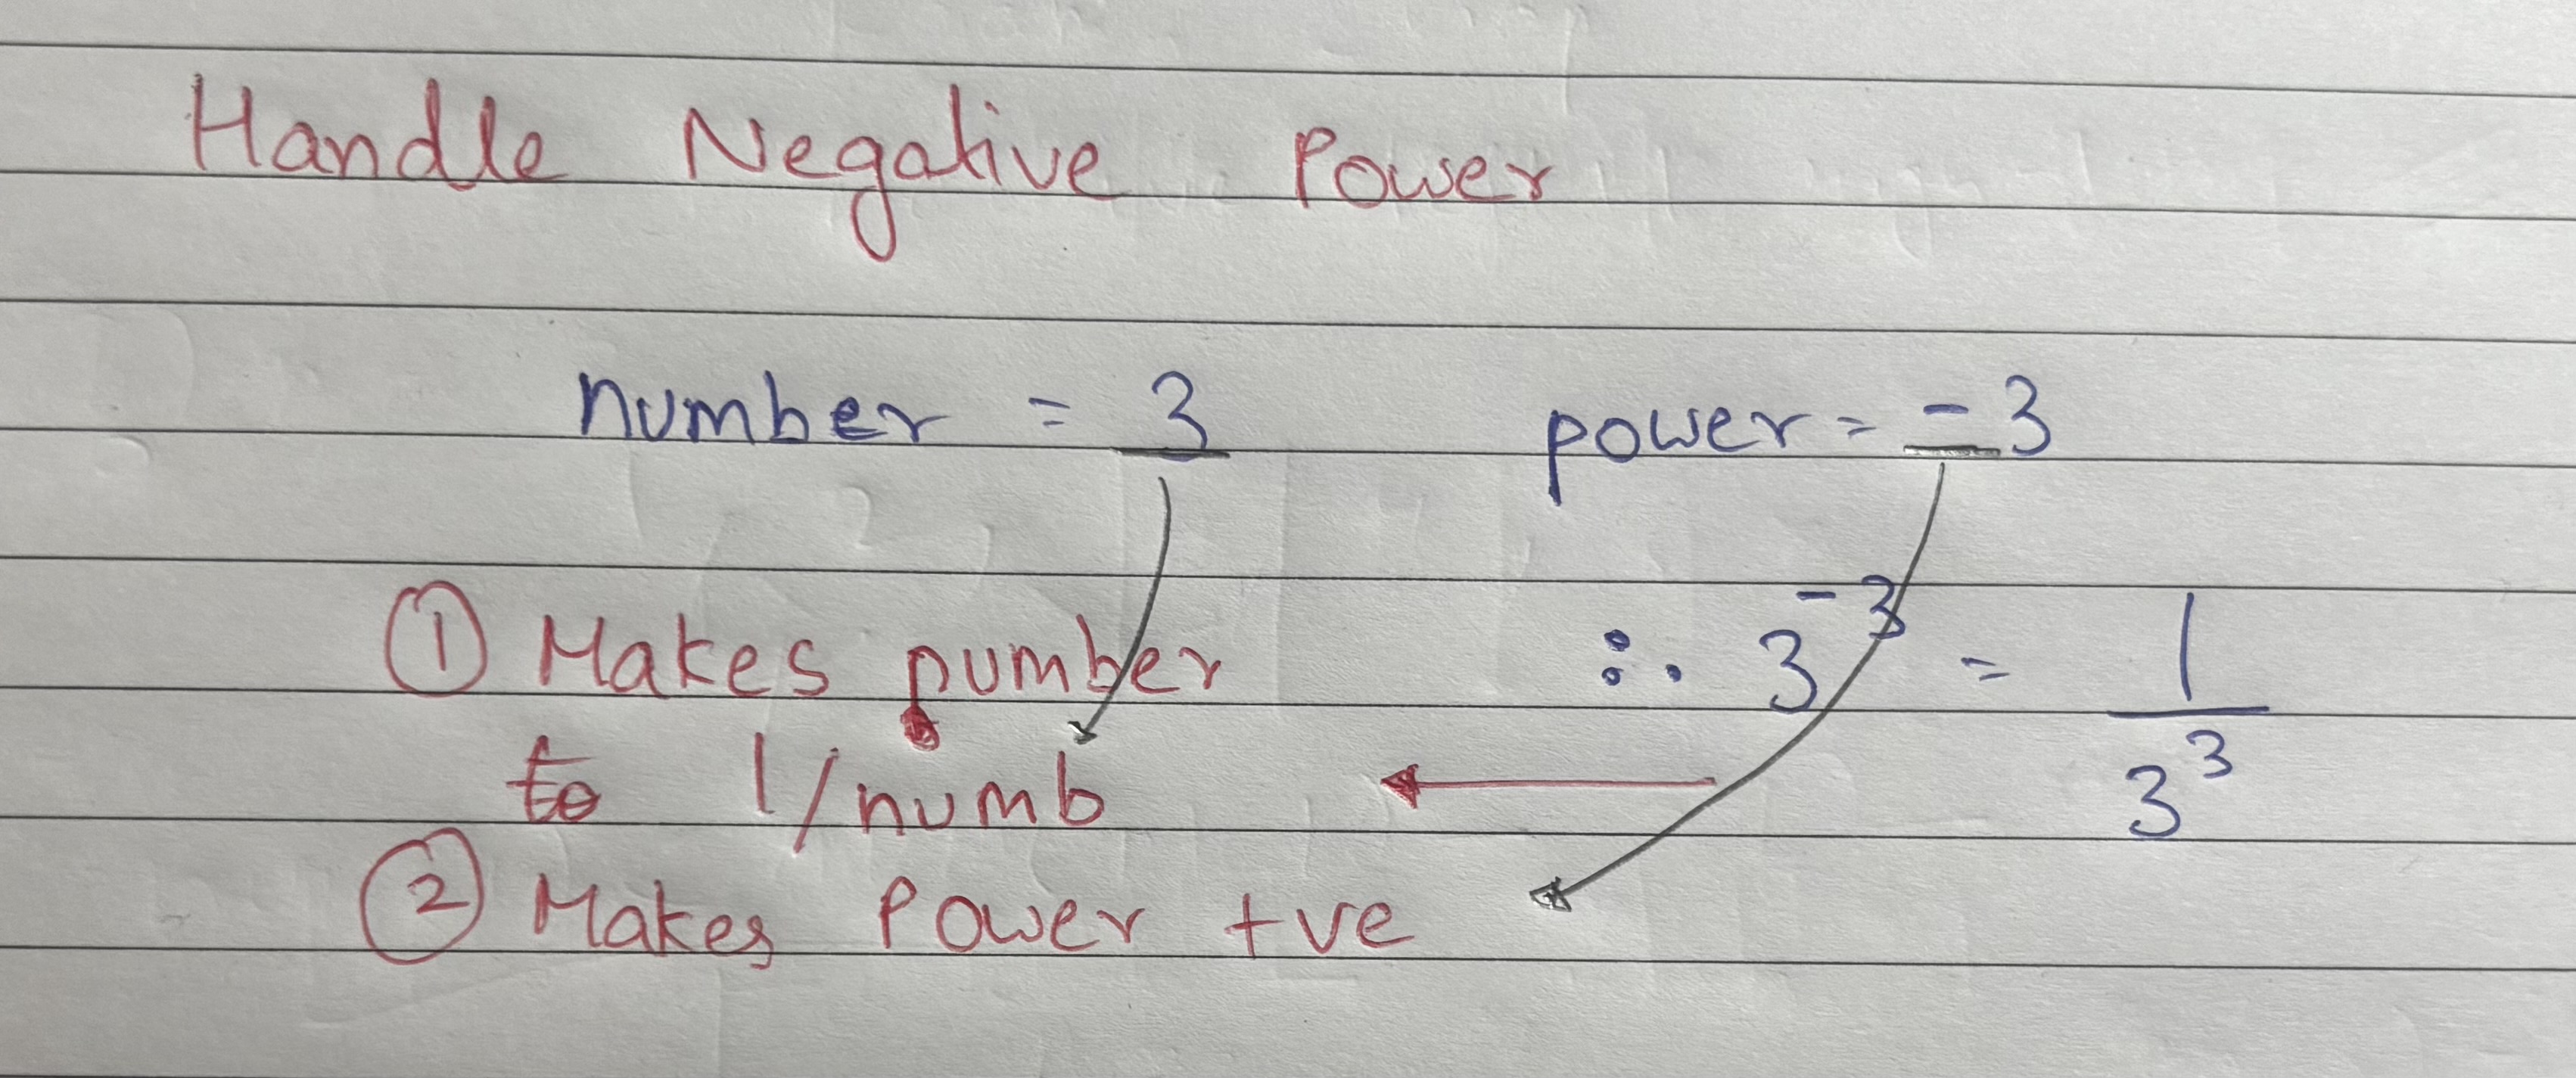 Handle Negative Power
number = 3 power = -3
① Makes number
to 1/numb
② Makes Power +ve
∴ 3⁻³ = 1/3³